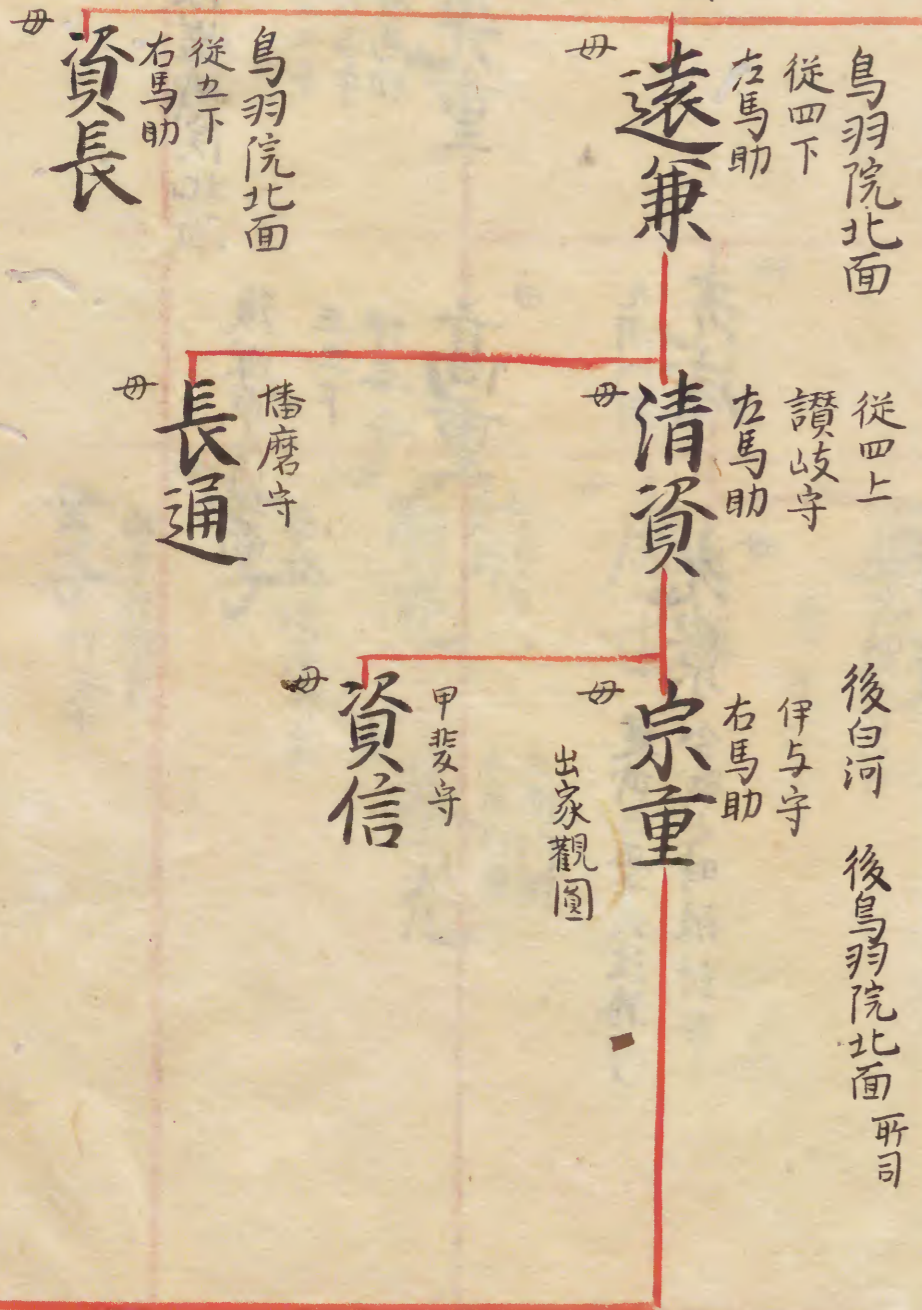 鳥羽院北面
従四下
左馬助
遠兼
母
鳥羽院北面
従五下
右馬助
資長
母
従四上
讃岐守
左馬助
清資
母
播磨守
長通
母
後白河 後鳥羽院北面 所司
伊与守
右馬助
宗重
母
出家觀圓
甲斐守
資信
母